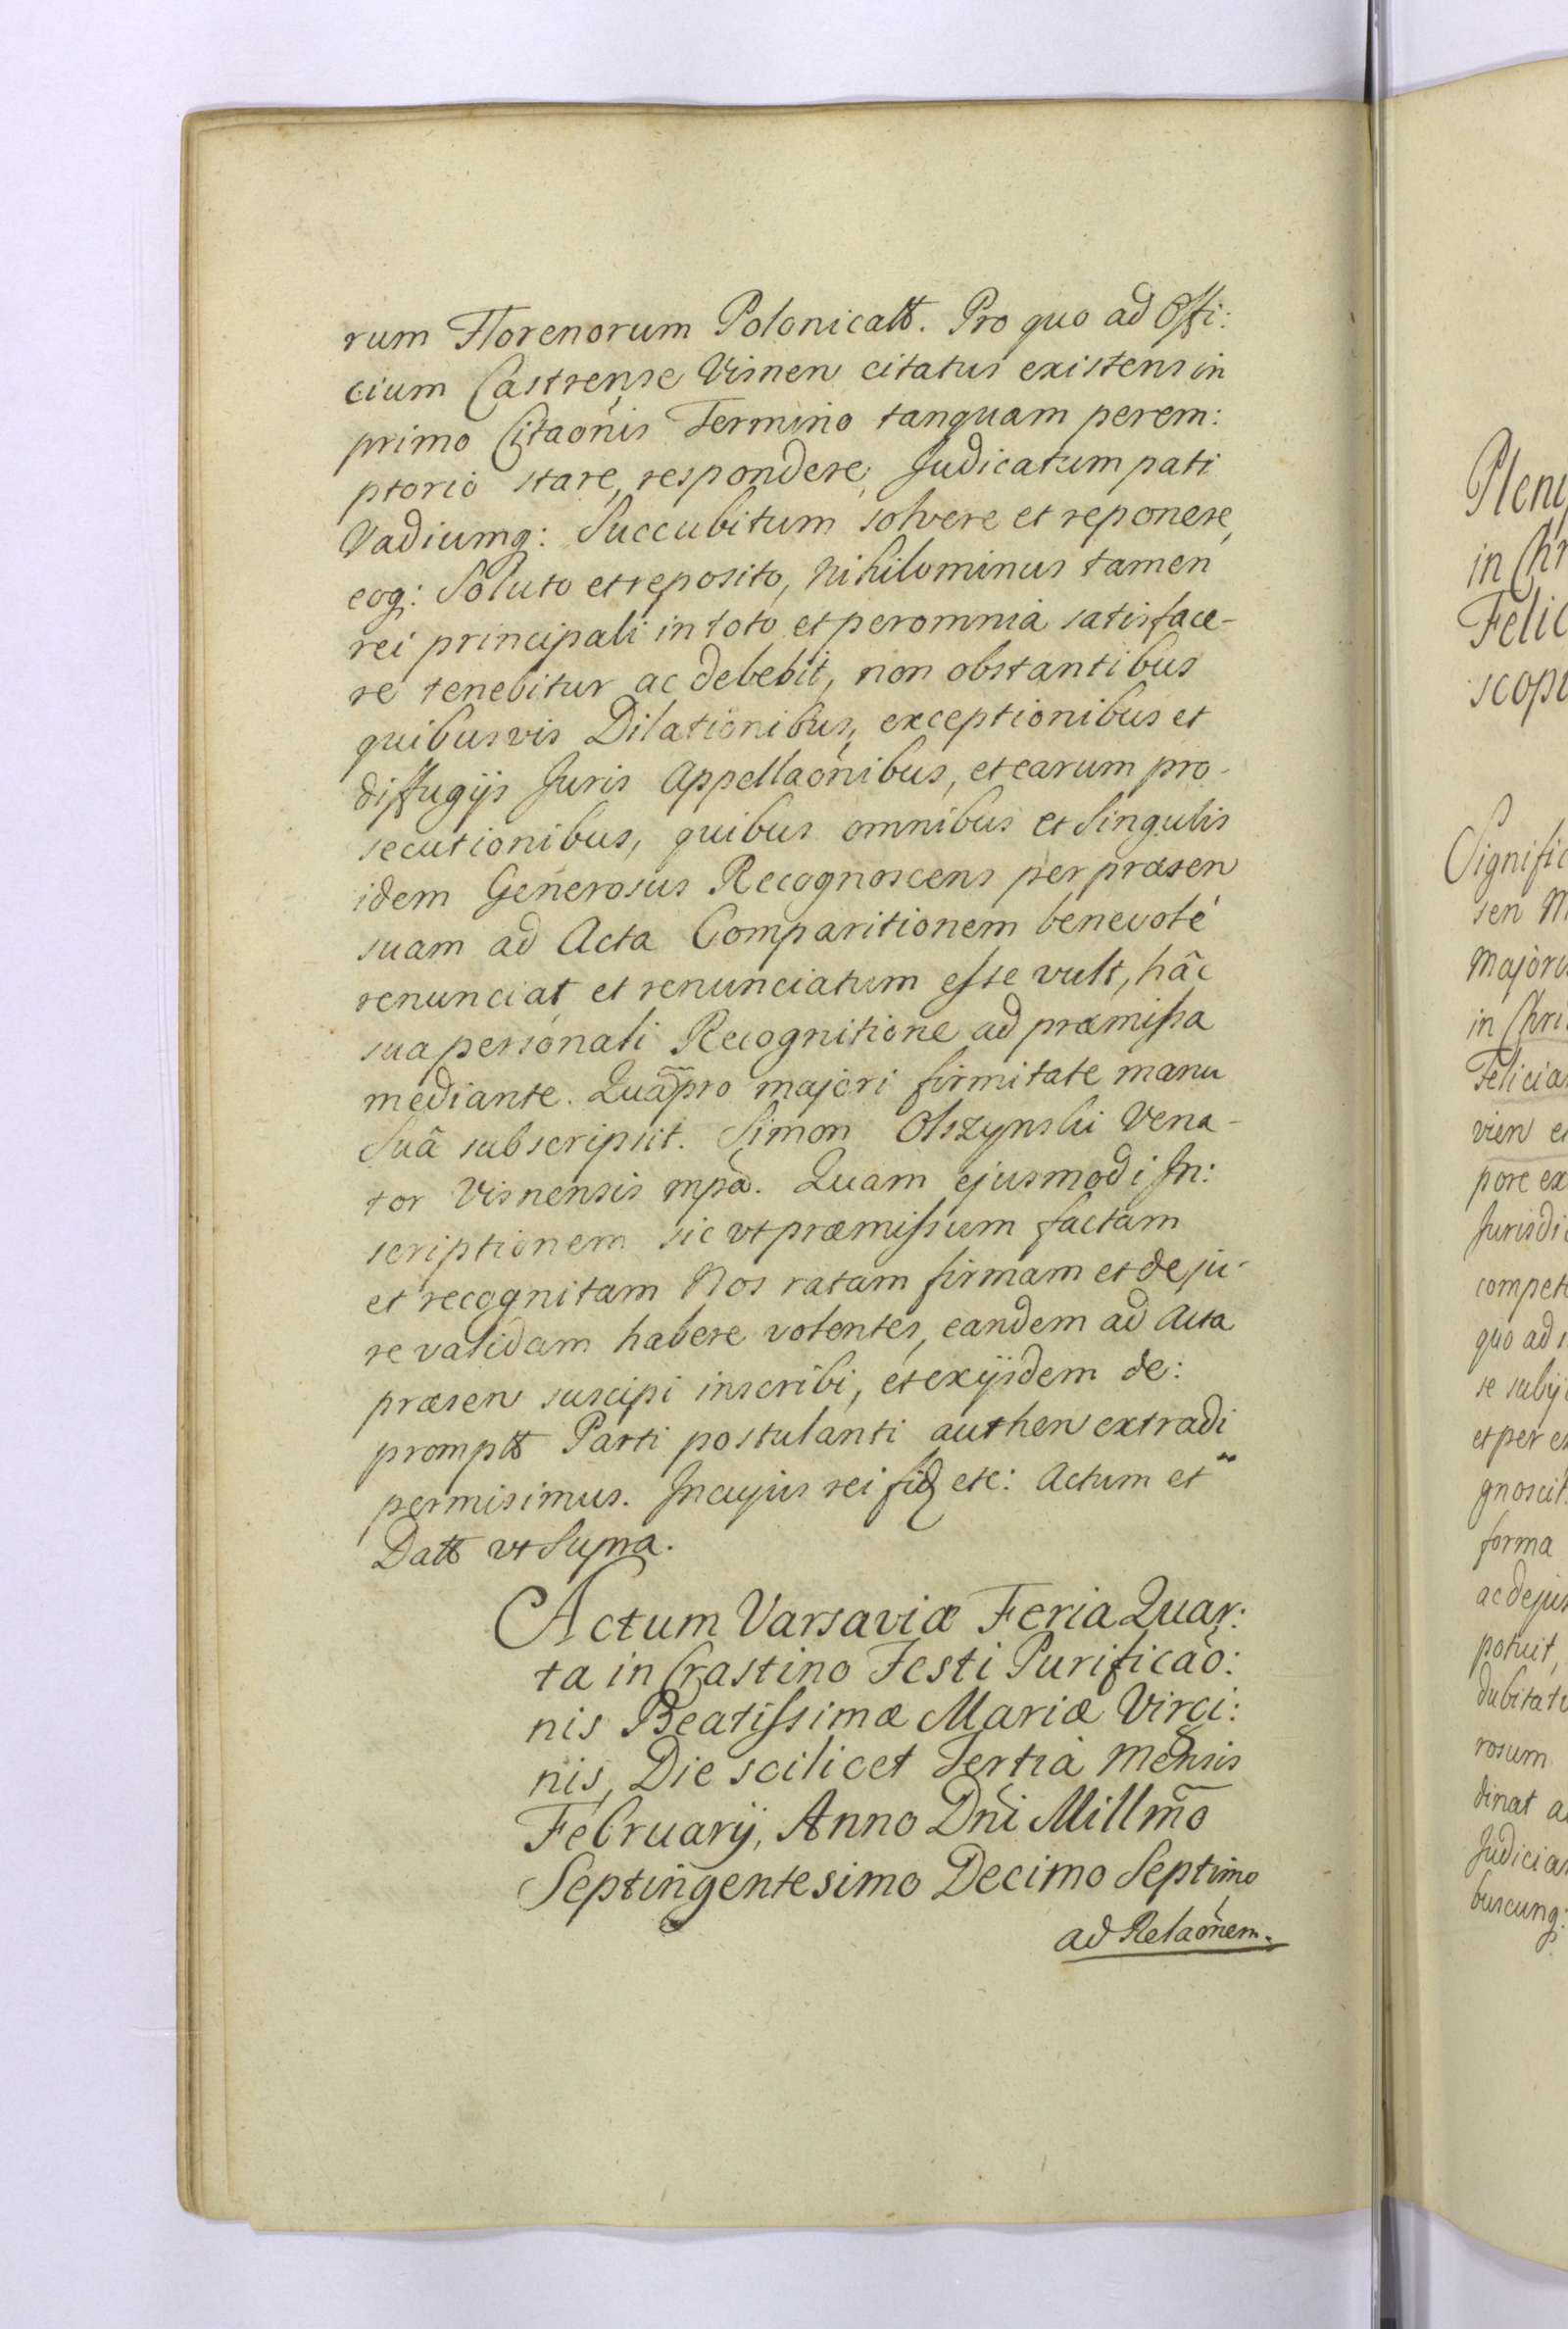 rum Florenorum Polonicalt. Pro quo ad Offi:
cium Castrense Visnen citatus existens in
primo Citaõnis Termino tanquam perem:
ptorio stare, respondere, Judicatum pati
Vadiumq: Succubitum solvere et reponere,
eoq: Soluto et reposito, nihilominus tamen
rei principali in toto et per omnia satisface-
re tenebitur ac debebit, non obstantibus
quibusvis Dilationibus, exceptionibus et
diffugijs Juris Appellaõnibus, et earum pro-
secutionibus, quibus omnibus et Singulis
idem Generosus Recognoscens per præsen
suam ad Acta Comparitionem benevolé
renunciat et renunciatum esse vult, hâc
sua personali Recognitione ad præmissa
mediante. Quam pro majori firmitate manu
Suâ subscripsit. Simon Olszynski Vena-
tor Visnensis mpa. Quam ejusmodi In:
scriptionem sic ut præmissum factam
et recognitam Nos ratam firmam et de ju-
re validam habere volentes, eandem ad Acta
præsen suscipi inscribi, et ex ijsdem de:
prompt Parti postulanti authen extradi
permisimus. In cujus rei fid etc: Actum et
Datt ut Supra.
Actum Varsaviæ Feria Quar:
ta in Crastino Festi Purificaõ:
nis Beatissimæ Mariæ Virgi:
nis, Die scilicet Tertia Mensis
Februarij, Anno Dni Millm̃o
Septingentesimo Decimo Septimo
ad Relaõnem.
in Chr
Felic
scop
Signific
sen M
Major
in Chri
Felicia
vien e
pore ex
Jurisdi
compet
quo ad
se subij
et per e
gnoscit.
forma
ac de jur
potuit,
dubitat
rosum
dinat a
Judicia
buscunq: